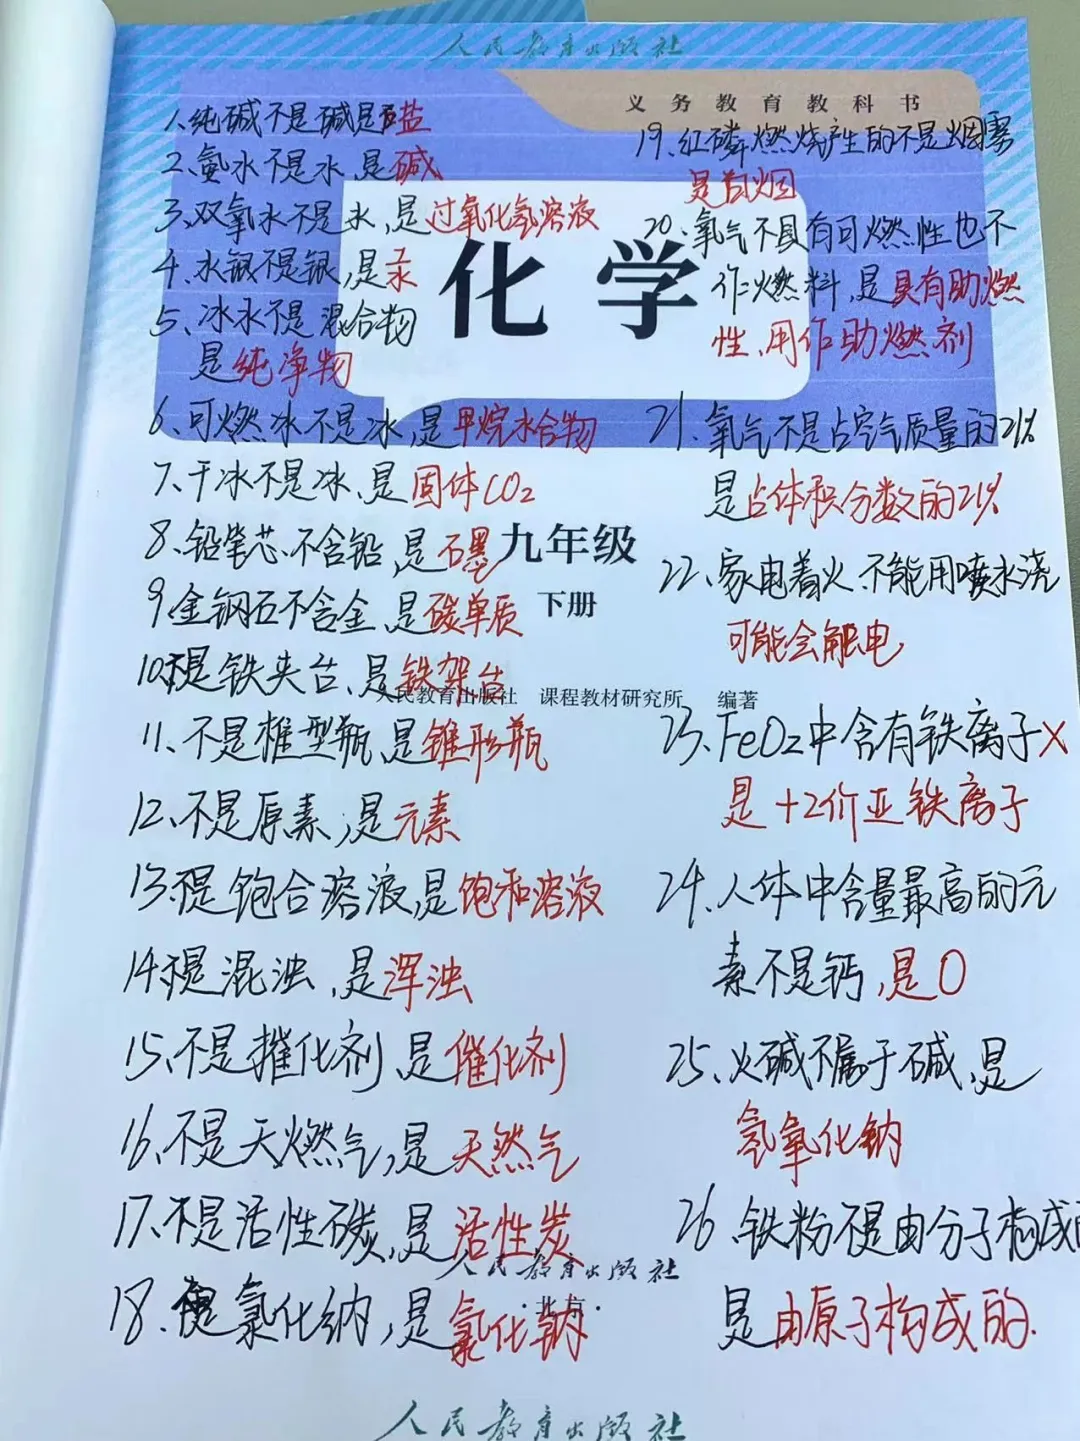 人民教育出版社
义务教育教科书
化学
九年级
下册
人民教育出版社 课程教材研究所 编著
1、纯碱不是碱是盐
2、氨水不是水,是碱
3、双氧水不是水,是过氧化氢溶液
4、水银不是银,是汞
5、冰水不是混合物
是纯净物
6、可燃冰不是冰,是甲烷水合物
7、干冰不是冰、是固体CO2
8、铅笔芯不含铅,是石墨
9、金钢石不含金,是碳单质
10、不是铁夹台、是铁架台
11、不是椎型瓶,是锥形瓶
12、不是厡素,是元素
13、不是饱合溶液,是饱和溶液
14、不是混浊,是浑浊
15、不是摧化剂,是催化剂
16、不是天燃气,是天然气
17、不是活性碳,是活性炭
18、不是氯化纳,是氯化钠
19、红磷燃烧产生的不是烟雾
是白烟
20、氧气不具有可燃性也不
作燃料,是具有助燃
性、用作助燃剂
21、氧气不是占空气质量的21%
是占体积分数的21%
22、家电着火、不能用喷水浇
可能会触电
23、FeO2中含有铁离子×
是+2价亚铁离子
24、人体中含量最高的元
素不是钙,是O
25、火碱不属于碱,是
氢氧化钠
26、铁粉不是由分子构成的
是由原子构成的.
人民教育出版社
·北京·
人民教育出版社